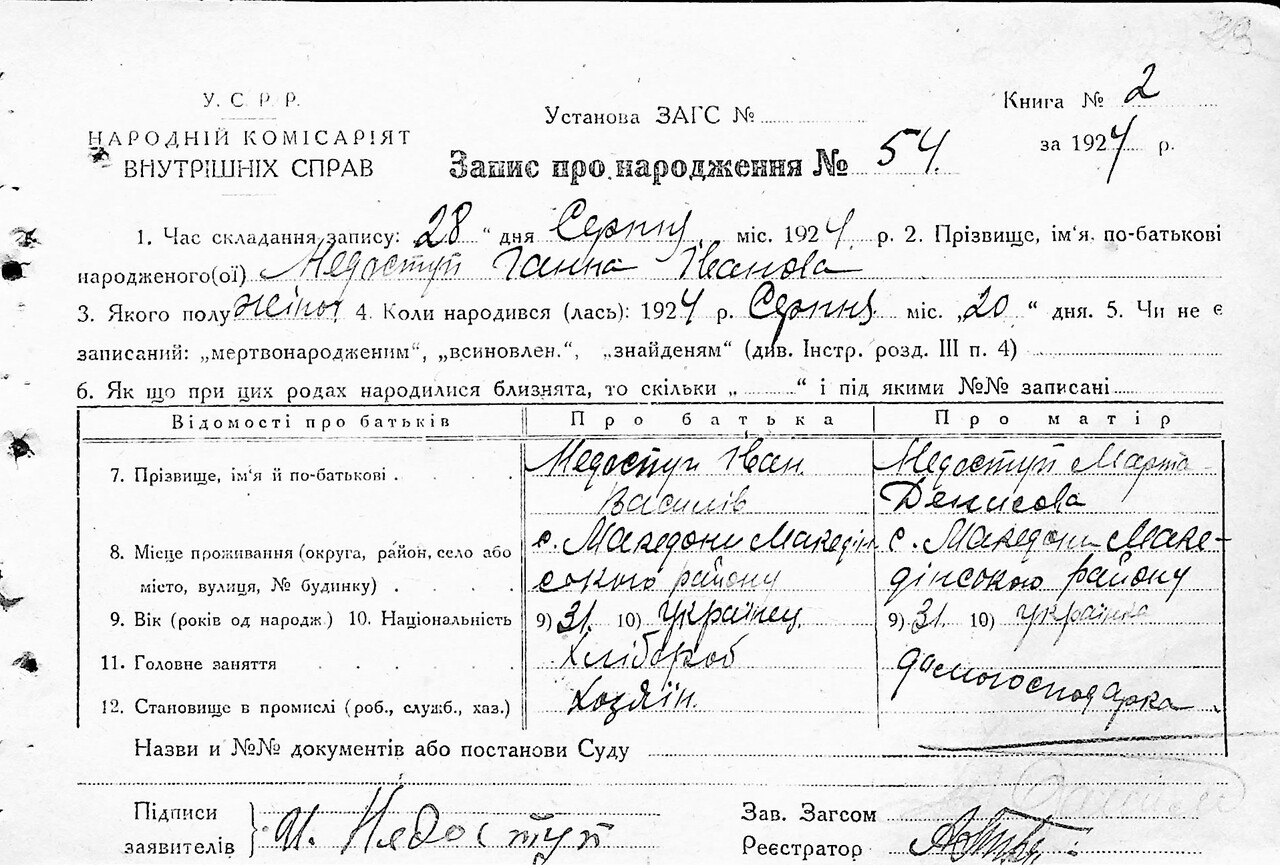 29
У. С. Р. Р.
НАРОДНІЙ КОМІСАРІЯТ
ВНУТРІШНІХ СПРАВ
Установа ЗАГС №
Книга № 2
за 1924 р.
Запис про народження № 54.
1. Час складання запису: 28 " дня Серпня міс. 1924 р. 2. Прізвище, ім'я, по-батькові
народженого(ої) Недоступ Ганна Іванова
3. Якого полу жіноч 4. Коли народився (лась): 1924 р. Серпня міс. „20 " дня. 5. Чи не є
записаний: „мертвонародженим", „всиновлен.", „знайденям" (див. Інстр. розд. III п. 4)
6. Як що при цих родах народилися близнята, то скільки „ " і під якими №№ записані
Відомості про батьків Про батька Про матір
7. Прізвище, ім'я й по-батькові . Недоступ Іван Василів Недоступ Марта Денисова
8. Місце проживання (округа, район, село або місто, вулиця, № будинку) . . . . с. Македони Македін ського району с. Македони Маке- дінського району
9. Вік (років од народж.) 10. Національність 9) 31. 10) Українец 9) 31. 10) Українка
11. Головне заняття . . . . . Хлібороб домогосподарка
12. Становище в промислі (роб., служб., хаз.) Хозяїн.
Назви и №№ документів або постанови Суду
Підписи
заявителів И. Нядоступ
Зав. Загсом
Реєстратор